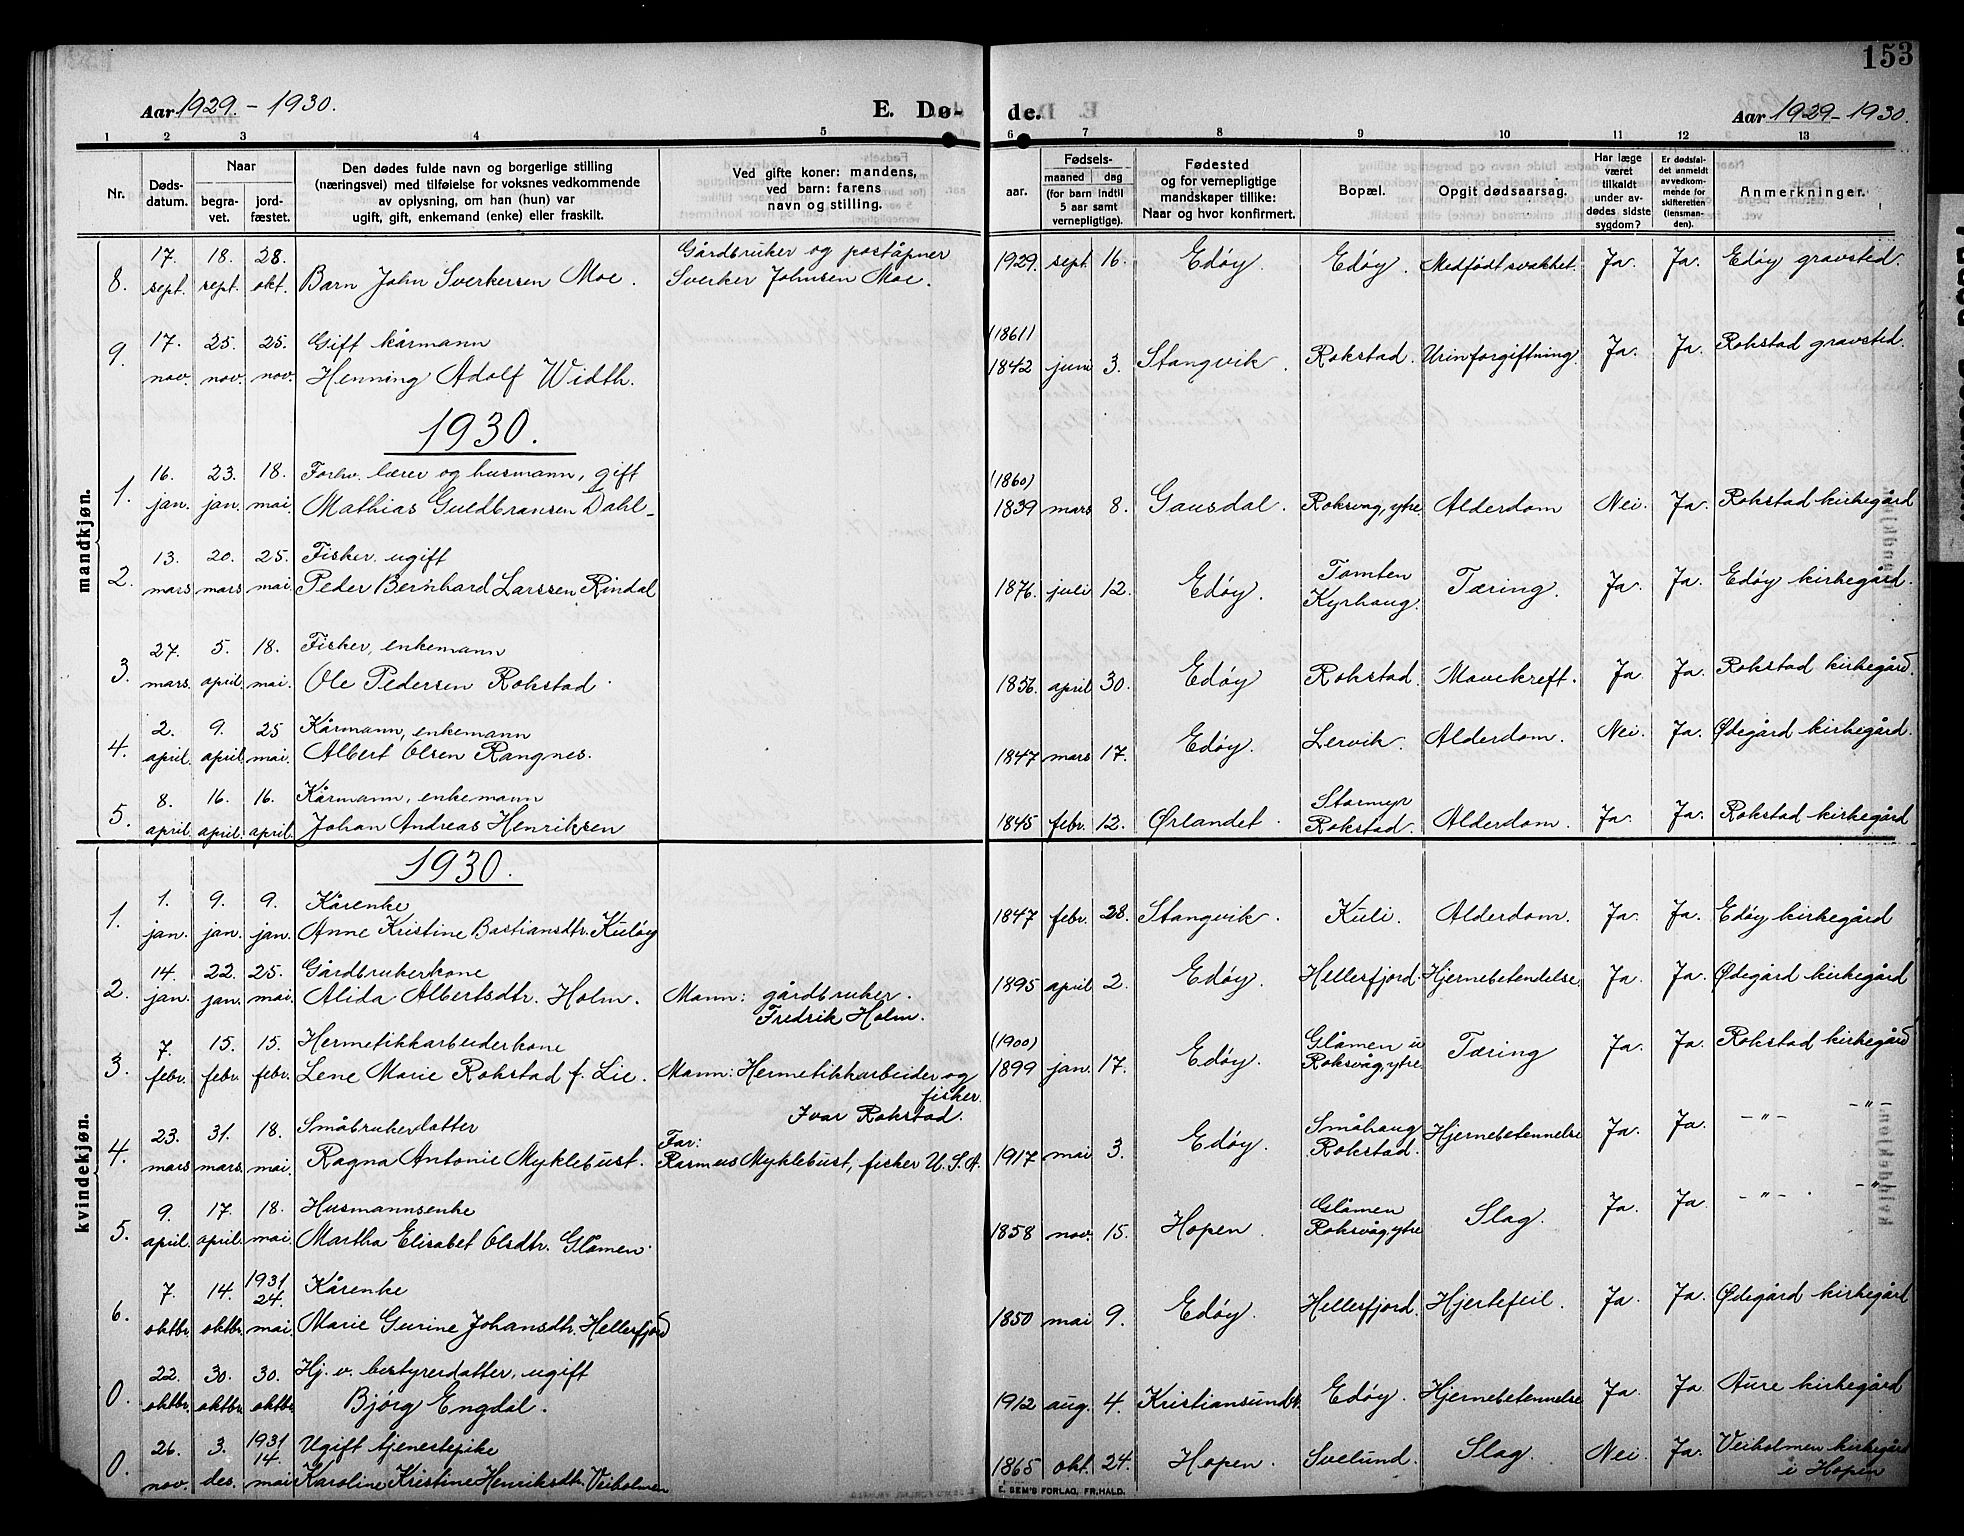 153
Aar 1929. - 1930.
E. Dø-
de.
Aar 1929 - 1930.
1 2 3 4 5 6 7 8 9 10 11 12 13
Nr.
Døds-
datum.
Naar
begra-
vet.
jord-
fæstet.
Den dødes fulde navn og borgerlige stilling
(næringsvei) med tilføielse for voksnes vedkommende
av oplysning, om han (hun) var
ugift, gift, enkemand (enke) eller fraskilt.
Ved gifte koner: mandens,
ved barn: farens
navn og stilling.
Fødsels-
aar.
maaned
dag
(for barn indtil
5 aar samt
vernepligtige).
Fødested
og for vernepligtige
mandskaper tillike:
Naar og hvor konfirmert.
Bopæl.
Opgit dødsaarsag.
Har læge
været
tilkaldt
under av-
dødes sidste
sygdom?
Er dødsfal-
det anmeldt
av vedkom-
mende for
skifteretten
(lensman-
den).
Anmerkninger.
mandkjøn.
17. 18. 28. Gårdbruker og poståpner
8. sept. sept. okt. Barn John Sverkersen Moe. Sverker Johnsen Moe. 1929. sept. 16. Edøy. Edøy. Medfødt svakhet. Ja. Ja. Edøy gravsted.
17. 25. 25. Gift kårmann (1861)
9. nov. nov. nov. Henning Adolf Width. 1842 juni 3. Stangvik. Rokstad. Urinforgiftning. Ja. Ja. Rokstad gravsted.
1930.
16. 23. 18. Forhv. lærer og husmann, gift (1860)
1. jan. jan. mai. Mathias Guldbransen Dahl- 1839 mars 8. Gausdal. Roksvåg, ytre Alderdom Nei. Ja. Rokstad kirkegård
13. 20. 25. Fisker, ugift Tomten
2. mars mars mai Peder Bernhard Larssen Rindal 1876. juli 12. Edøy. Kyrhaug. Tæring. Ja. Ja. Edøy kirkegård.
27. 5. 18. Fisker, enkemann
3. mars. april. mai. Ole Pedersen Rokstad. 1856. april 30. Edøy Rokstad. Mavekreft. Ja. Ja. Rokstad kirkegård.
2. 9. 25 Kårmann, enkemann
4. april. april. mai. Albert Olsen Rangnes. 1847 mars 17. Edøy. Lervik. Alderdom. Nei. Ja. Ødegård kirkegård.
8. 16. 16. Kårmann, enkemann Stormyr
5. april. april. april. Johan Andreas Henriksen 1845 febr. 12. Ørlandet. Rokstad. Alderdom. Ja. Ja. Rokstad kirkegård
kvindekjøn.
1930.
1. 9. 9. Kårenke
1. jan. jan. jan. Anne Kristine Bastiansdtr. Kuløy 1847 febr. 28. Stangvik. Kuli. Alderdom. Ja. Ja. Edøy kirkegård
14. 22. 25. Gårdbrukerkone
2. jan. jan. mai. Alida Albertsdtr. Holm. Mann: gårdbruker. 1895 april 2. Edøy. Hellerfjord. Hjernebetendelse. Ja. Ja. Ødegård kirkegård
Fredrik Holm.
7. 15. 15. Hermetikkarbeiderkone (1900) Glåmen u
3. febr. febr. febr. Lene Marie Rokstad f. Lie. Mann: Hermetikkarbeider og 1899 jan. 17. Edøy. Roksvåg, ytre Tæring Ja. Ja. Rokstad kirkegård
fisker.
Ivar Rokstad.
23. 31. 18. Småbrukerdatter Far: Småhaug
4. mars mars. mai. Ragna Antonie Myklebust. Rasmus Myklebust, fisker U. S. A. 1917 mai 3. Edøy. Rokstad. Hjernebetennelse Ja. Ja. -"- -"-
9. 17. 18. Husmannsenke Glåmen
5. april. april. mai. Martha Elisabet Olsdtr. Glåmen. 1858 nov. 15. Hopen. Roksvåg, ytre Slag. Ja. Ja. -"- . -"-
1931
7. 14. 24. Kårenke
6. oktbr. oktbr. mai. Marie Gurine Johansdtr. Hellerfjord 1850 mai 9. Edøy. Hellerfjord. Hjertefeil. Ja. Ja. Ødegård kirkegård
22. 30. 30. Hj. v. bestyrerdatter, ugift
0. oktbr. oktbr. oktbr. Bjørg Engdal. 1912 aug. 4. Kristiansund N. Edøy. Hjernebetennelse Ja. Ja. Aure kirkegård
1931
26. 3. 14. Ugift tjenestepike
0. nov. des. mai Karoline Kristine Henriksdtr. Veiholmen 1865 okt. 24. Hopen. Svelund. Slag Nei. Ja. Veiholmen kirkegård
i Hopen
E. SEM'S FORLAG, FR.HALD.